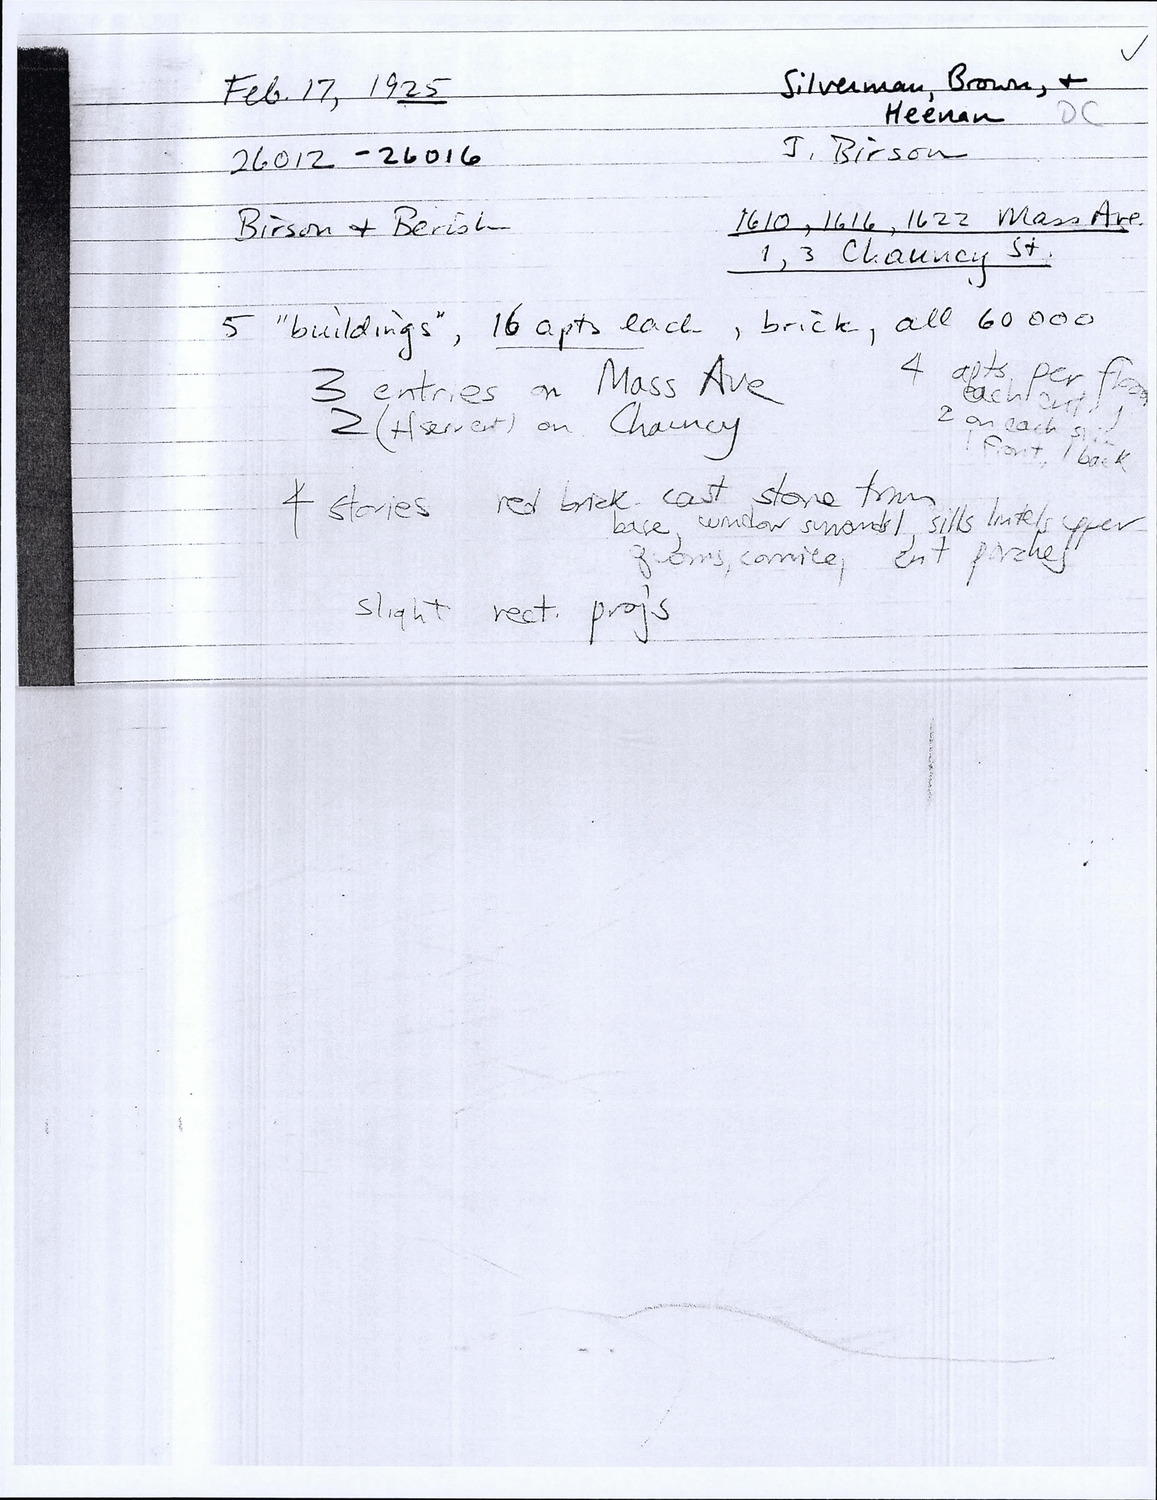 ✓
Feb. 17, 1925
Silverman, Brown, +
Heenan DC
26012 - 26016
J. Birson
Birson + Berish
1610, 1616, 1622 Mass Ave.
1, 3 Chauncy St.
5 "buildings", 16 apts each, brick, all 60 000
3 entries on Mass Ave
4 apts per floor
each entry
2 (+1 servent) on Chauncy
2 on each side
1 front, 1 back
4 stories red brick cast stone trim
base, window surounds, sills lintels upper
quoins, cornice, ent porches
slight rect. proj's